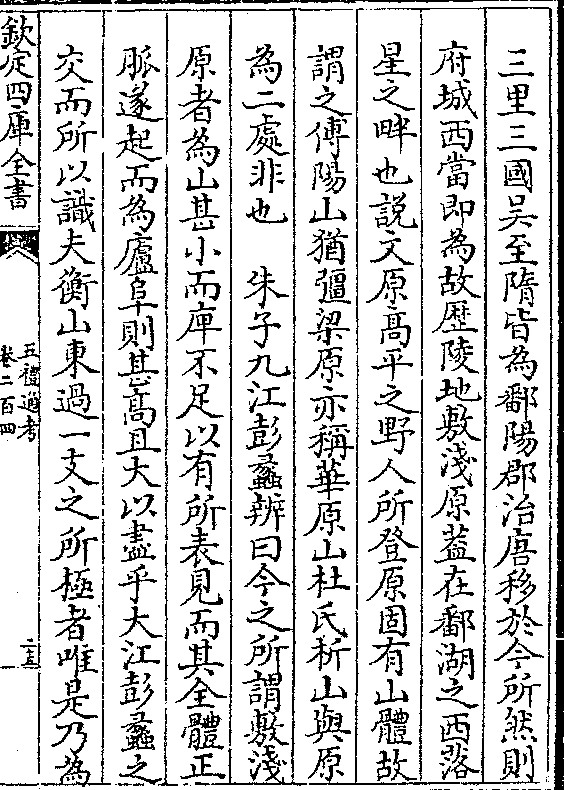 三里三國吳至隋皆為鄱陽郡治唐移於今所然則
府城西當即為故歴陵地敷淺原葢在鄱湖之西落
星之畔也説文原高平之野人所登原固有山體故
謂之傅陽山猶彊梁原亦稱華原山杜氏析山與原
為二處非也　朱子九江彭蠡辨曰今之所謂敷淺
原者為山甚小而庳不足以有所表見而其全體正
脈遂起而為廬阜則甚髙且大以盡乎大江彭蠡之
交而所以識夫衡山東過一支之所極者唯是乃為
欽定四庫全書
五禮通考
卷二百四
二五